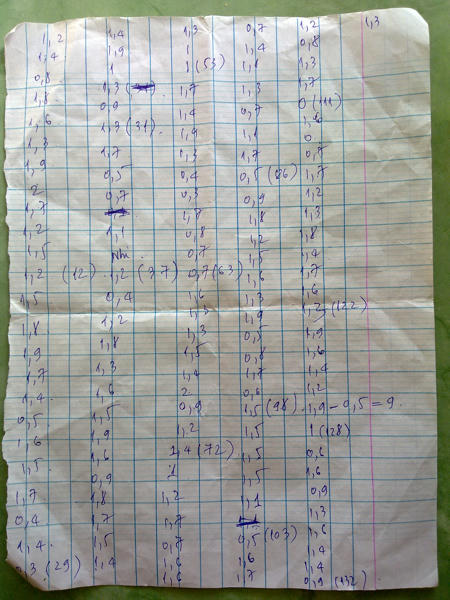 1,2
1,4
0,8
1,8
1,6
1,3
1,9
2
1,7
1,2
1,5
1,2 (12)
1,5
1,8
1,9
1,7
1,4
0,5
1,6
1,5
1,7
0,4
1,4
0,3 (29)
1,4
1,9
1
1,3
0,9
1,3 (31)
1,7
0,5
0,7
1,1
Nhi
1,2 (37)
0,4
1,2
1,8
1,3
1,6
1,5
1,9
1,6
0,9
1,8
1,7
1,5
1,4
1,3
1
1 (53)
1,7
1,4
1,9
1,3
0,4
0,3
1,7
0,8
0,7
0,7 (63)
1,6
1,3
1,3
1,5
1,4
2
0,9
1,2
1,4 (72)
1
1,2
1,7
0,7
1,6
1,6
0,7
1,4
1,1
1,3
0,7
1,1
1,7
0,5 (86)
0,9
1,8
1,2
1,5
1,6
1,3
1,9
0,5
0,8
1,7
0,6
1,5 (98)
1,5
1,5
1,5
1,1
0,5 (103)
1,6
1,7
1,2
0,8
1,3
1,7
0 (111)
1,6
0
0,5
1,7
1,2
1,3
1,8
1,4
1,7
1,6
1,2 (122)
1,9
1,6
1,4
1,2
1,9 - 0,5 = 9
1 (128)
0,6
1,6
0,9
1,3
1,6
1,4
1,4
0,9 (132)
1,3